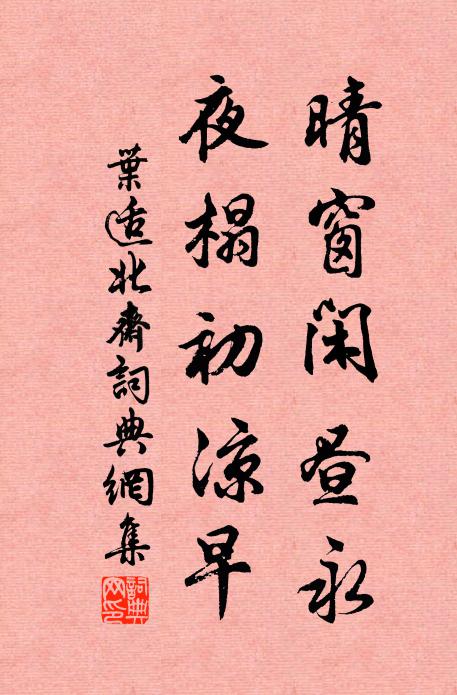 晴窗閑昼永
夜榻初涼早
葉适北齋詞典網集
詞典网印